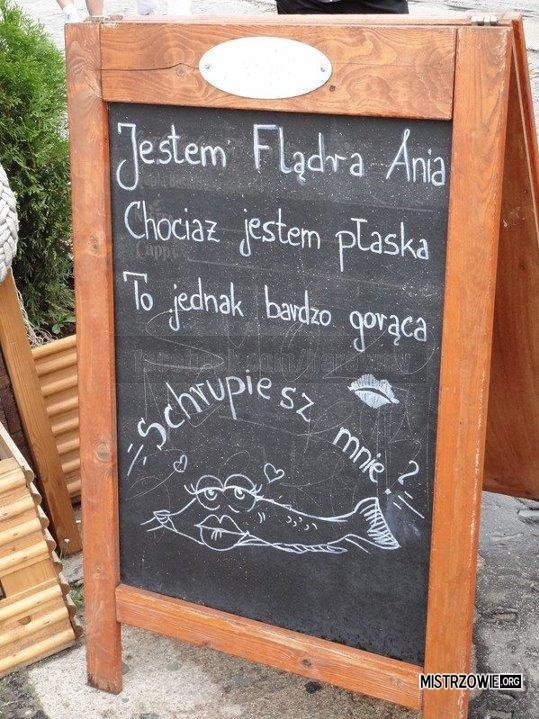 Jestem Flądra Ania
Chociaż jestem płaska
To jednak bardzo gorąca
Schrupiesz mnie?
MISTRZOWIE.ORG